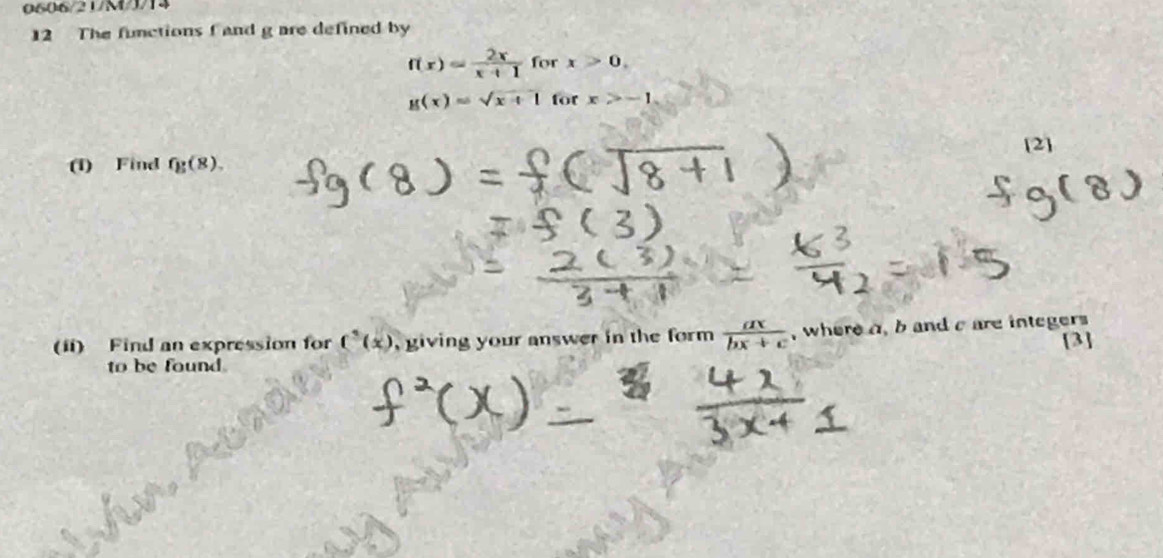 0606/21/M/J/14
12 The functions f and g are defined by
f(x) = 2x/(x + 1) for x > 0,
g(x) = √(x + 1) for x > −1.
(i) Find fg(8). [2]
fg(8) = f(√(8+1)) fg(8)
= f(3)
= 2(3)/(3+1) = 6 3/4 2 = 1 5
(ii) Find an expression for f²(x), giving your answer in the form ax/(bx + c), where a, b and c are integers
to be found. [3]
f²(x) = 4x/(3x+1)
Alvin Academy